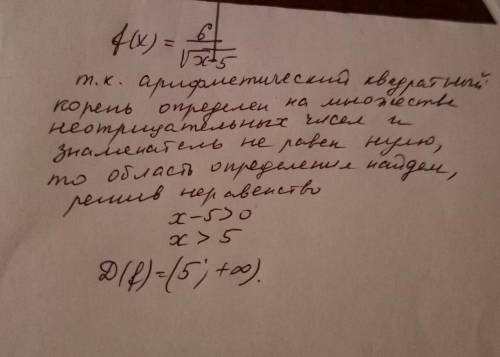 f(x) = 6/√(x-5)
т.к. арифметический квадратный
корень определен на множестве
неотрицательных чисел и
знаменатель не равен нулю,
то область определения найдем,
решив неравенство
x-5>0
x > 5
D(f)=(5; +∞).